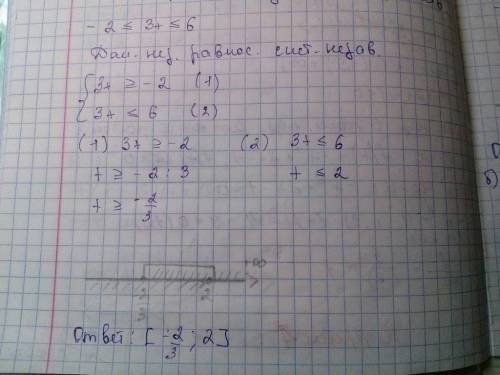 -2 ≤ 3x ≤ 6
Дан. нер. равнос. сист. нерав.
{ 3x ≥ -2 (1)
3x ≤ 6 (2)
(1) 3x ≥ -2 (2) 3x ≤ 6
x ≥ -2 : 3 x ≤ 2
x ≥ -2/3
-2/3 2 +∞
Ответ: [-2/3 ; 2]
б)